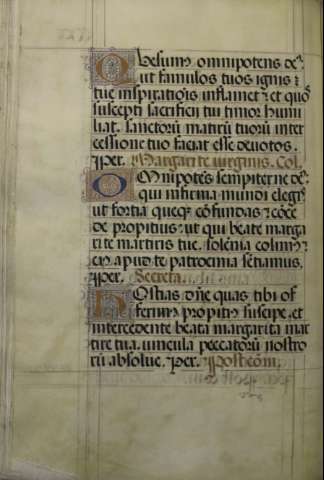 Adesium omnipotens de9.
ut famulos tuos ignis ⁊
tue inspirationis inflamet ⁊ et quos
suscepti sacrificii tui timor humi
liat. sanctorum matirum tuorum inter
cessione tuo faciat esse devotos.
Per. Margarite virginis. Col.
Omnipotens sempiterne de9.
qui infirma mundi elegis
ut fortia queque confundas ⁊ conce
de propitius ut qui beate marga
rite martiris tue. solenia colimus
eius apud te patrocinia sentiamus.
Per. Secreta.
Hostias dne quas tibi of
ferimus propitius suscipe. et
intercedente beata margarita mar
tire tua. vincula peccatorum nostro
rum absolve. Per. Postcom.